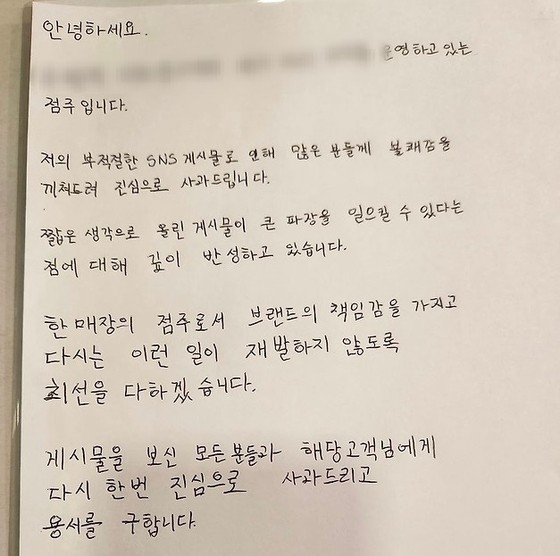 안녕하세요.
영하고 있는
점주 입니다.
저의 부적절한 SNS 게시물로 인해 많은 분들께 불쾌감을
끼쳐드려 진심으로 사과드립니다.
짧은 생각으로 올린 게시물이 큰 파장을 일으킬 수 있다는
점에 대해 깊이 반성하고 있습니다.
한 매장의 점주로서 브랜드의 책임감을 가지고
다시는 이런 일이 재발하지 않도록
최선을 다하겠습니다.
게시물을 보신 모든분들과 해당고객님에게
다시 한번 진심으로 사과드리고
용서를 구합니다.